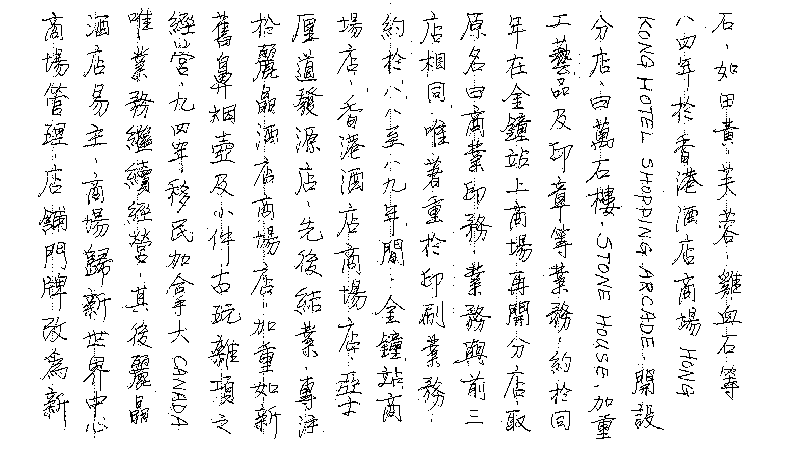 石、如田黃、芙蓉、雞血石等
八四年於香港酒店商場 HONG
KONG HOTEL SHOPPING ARCADE、開設
分店、曰萬石樓、STONE HOUSE、加重
工藝品及印章等業務、約於同
年在金鐘站上商場再開分店、取
原名曰商業印務、業務與前三
店相同、唯著重於印刷業務、
約於八八至八九年間、金鐘站商
場店、香港酒店商場店、亞士
厘道發源店、先後結業、專注
於麗晶酒店商場店、加重如新
舊鼻烟壺及小件古玩雜項之
經營、九四年移民加拿大 CANADA
唯業務繼續經營、其後麗晶
酒店易主、商場歸新世界中心
商場管理、店鋪門牌改為新